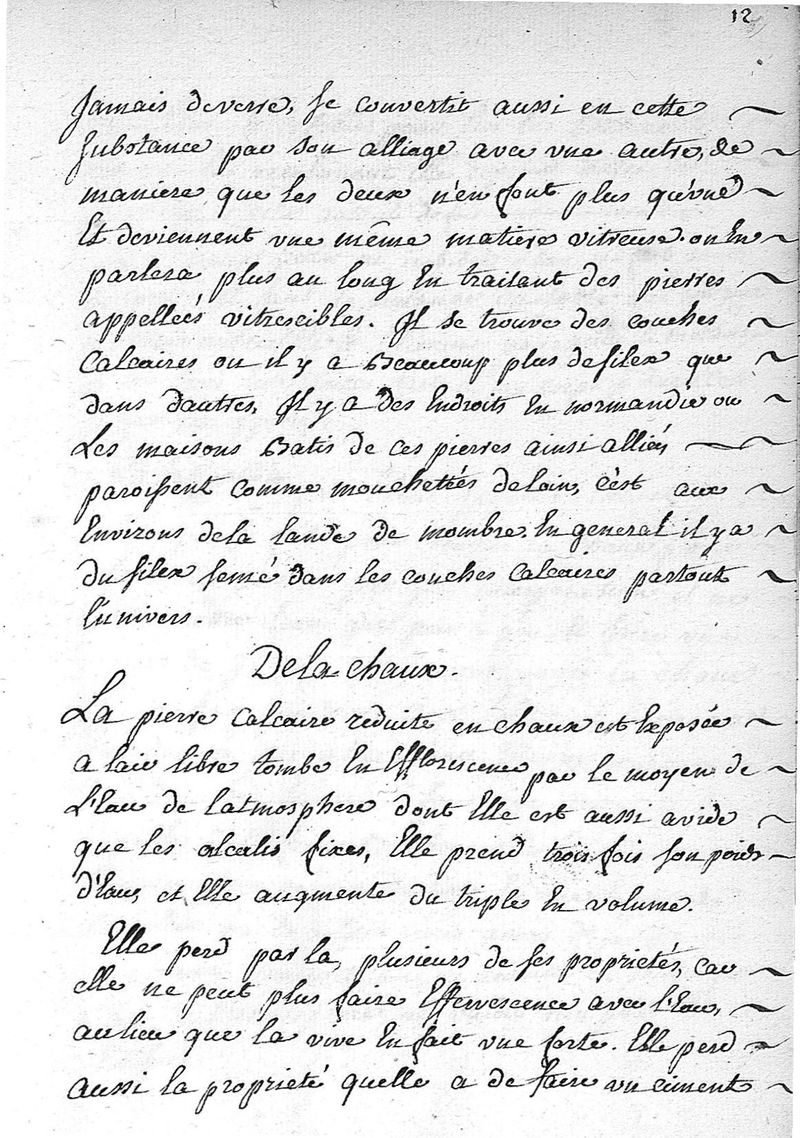 12
Jamais de verre, se convertit aussi en cette
Substance par son alliage avec une autre, de
maniere que les deux n'en font plus qu'une
Et deviennent une même matiere vitreuse. on En
parlera plus au long En traitant des pierres
appellées vitrescibles. Il se trouve des couches
Calcaires ou il y a Beaucoup plus de silex que
dans d'autres, Il y a des Endroits En normandie ou
Les maisons Batis de ces pierres ainsi alliés
paroissent comme mouchettés de loin, c'est aux
Environs de la lande de mombre. En general il y a
du silex semé dans les couches Calcaires partout
l'univers.
De la chaux.
La pierre Calcaire reduite en chaux et Exposée
a l'air libre tombe En Efflorescence par le moyen de
L'Eau de l'atmosphere dont Elle est aussi avide
que les alcalis fixes, Elle prend trois fois son poids
d'Eau, et Elle augmente du triple En volume.
Elle perd par la, plusieurs de ses proprietés, car
elle ne peut plus faire Effervescence avec l'Eau,
au lieu que la vive En fait une forte. Elle perd
aussi la proprieté quelle a de faire un ciment